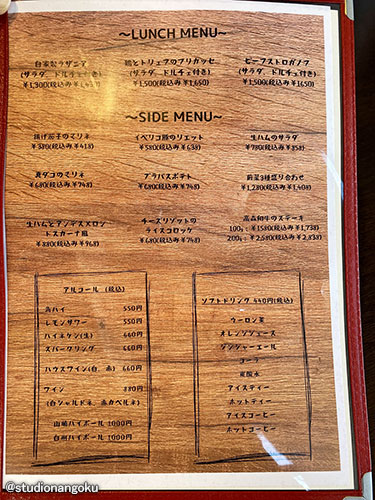 〜LUNCH MENU〜
自家製ラザニア
(サラダ、ドルチェ付き)
¥1,300(税込み¥1,430)
鶏とトリュフのフリカッセ
(サラダ、ドルチェ付き)
¥1,500(税込み¥1,650)
ビーフストロガノフ
(サラダ、ドルチェ付き)
¥1,500(税込み¥1,650)
〜SIDE MENU〜
揚げ茄子のマリネ
¥380(税込み¥418)
イベリコ豚のリエット
¥580(税込み¥638)
生ハムのサラダ
¥780(税込み¥858)
真ダコのマリネ
¥680(税込み¥748)
アラバスポテト
¥680(税込み¥748)
前菜3種盛り合わせ
¥1,280(税込み¥1,408)
生ハムとアンデスメロン
トスカーナ風
¥880(税込み¥968)
チーズリゾットの
ライスコロッケ
¥680(税込み¥748)
高森和牛のステーキ
100g:¥1580(税込み¥1,738)
200g:¥2,580(税込み¥2,838)
アルコール (税込)
ハイ 550円
レモンサワー 550円
ハイネケン(生) 660円
スパークリング 660円
ハウスワイン(白、赤) 660円
ワイン 880円
(白シャルドネ、赤カベルネ)
山崎ハイボール 1000円
白州ハイボール 1000円
ソフトドリンク 440円(税込)
ウーロン茶
オレンジジュース
ジンジャーエール
コーラ
炭酸水
アイスティー
ホットティー
アイスコーヒー
ホットコーヒー
@studionangoku